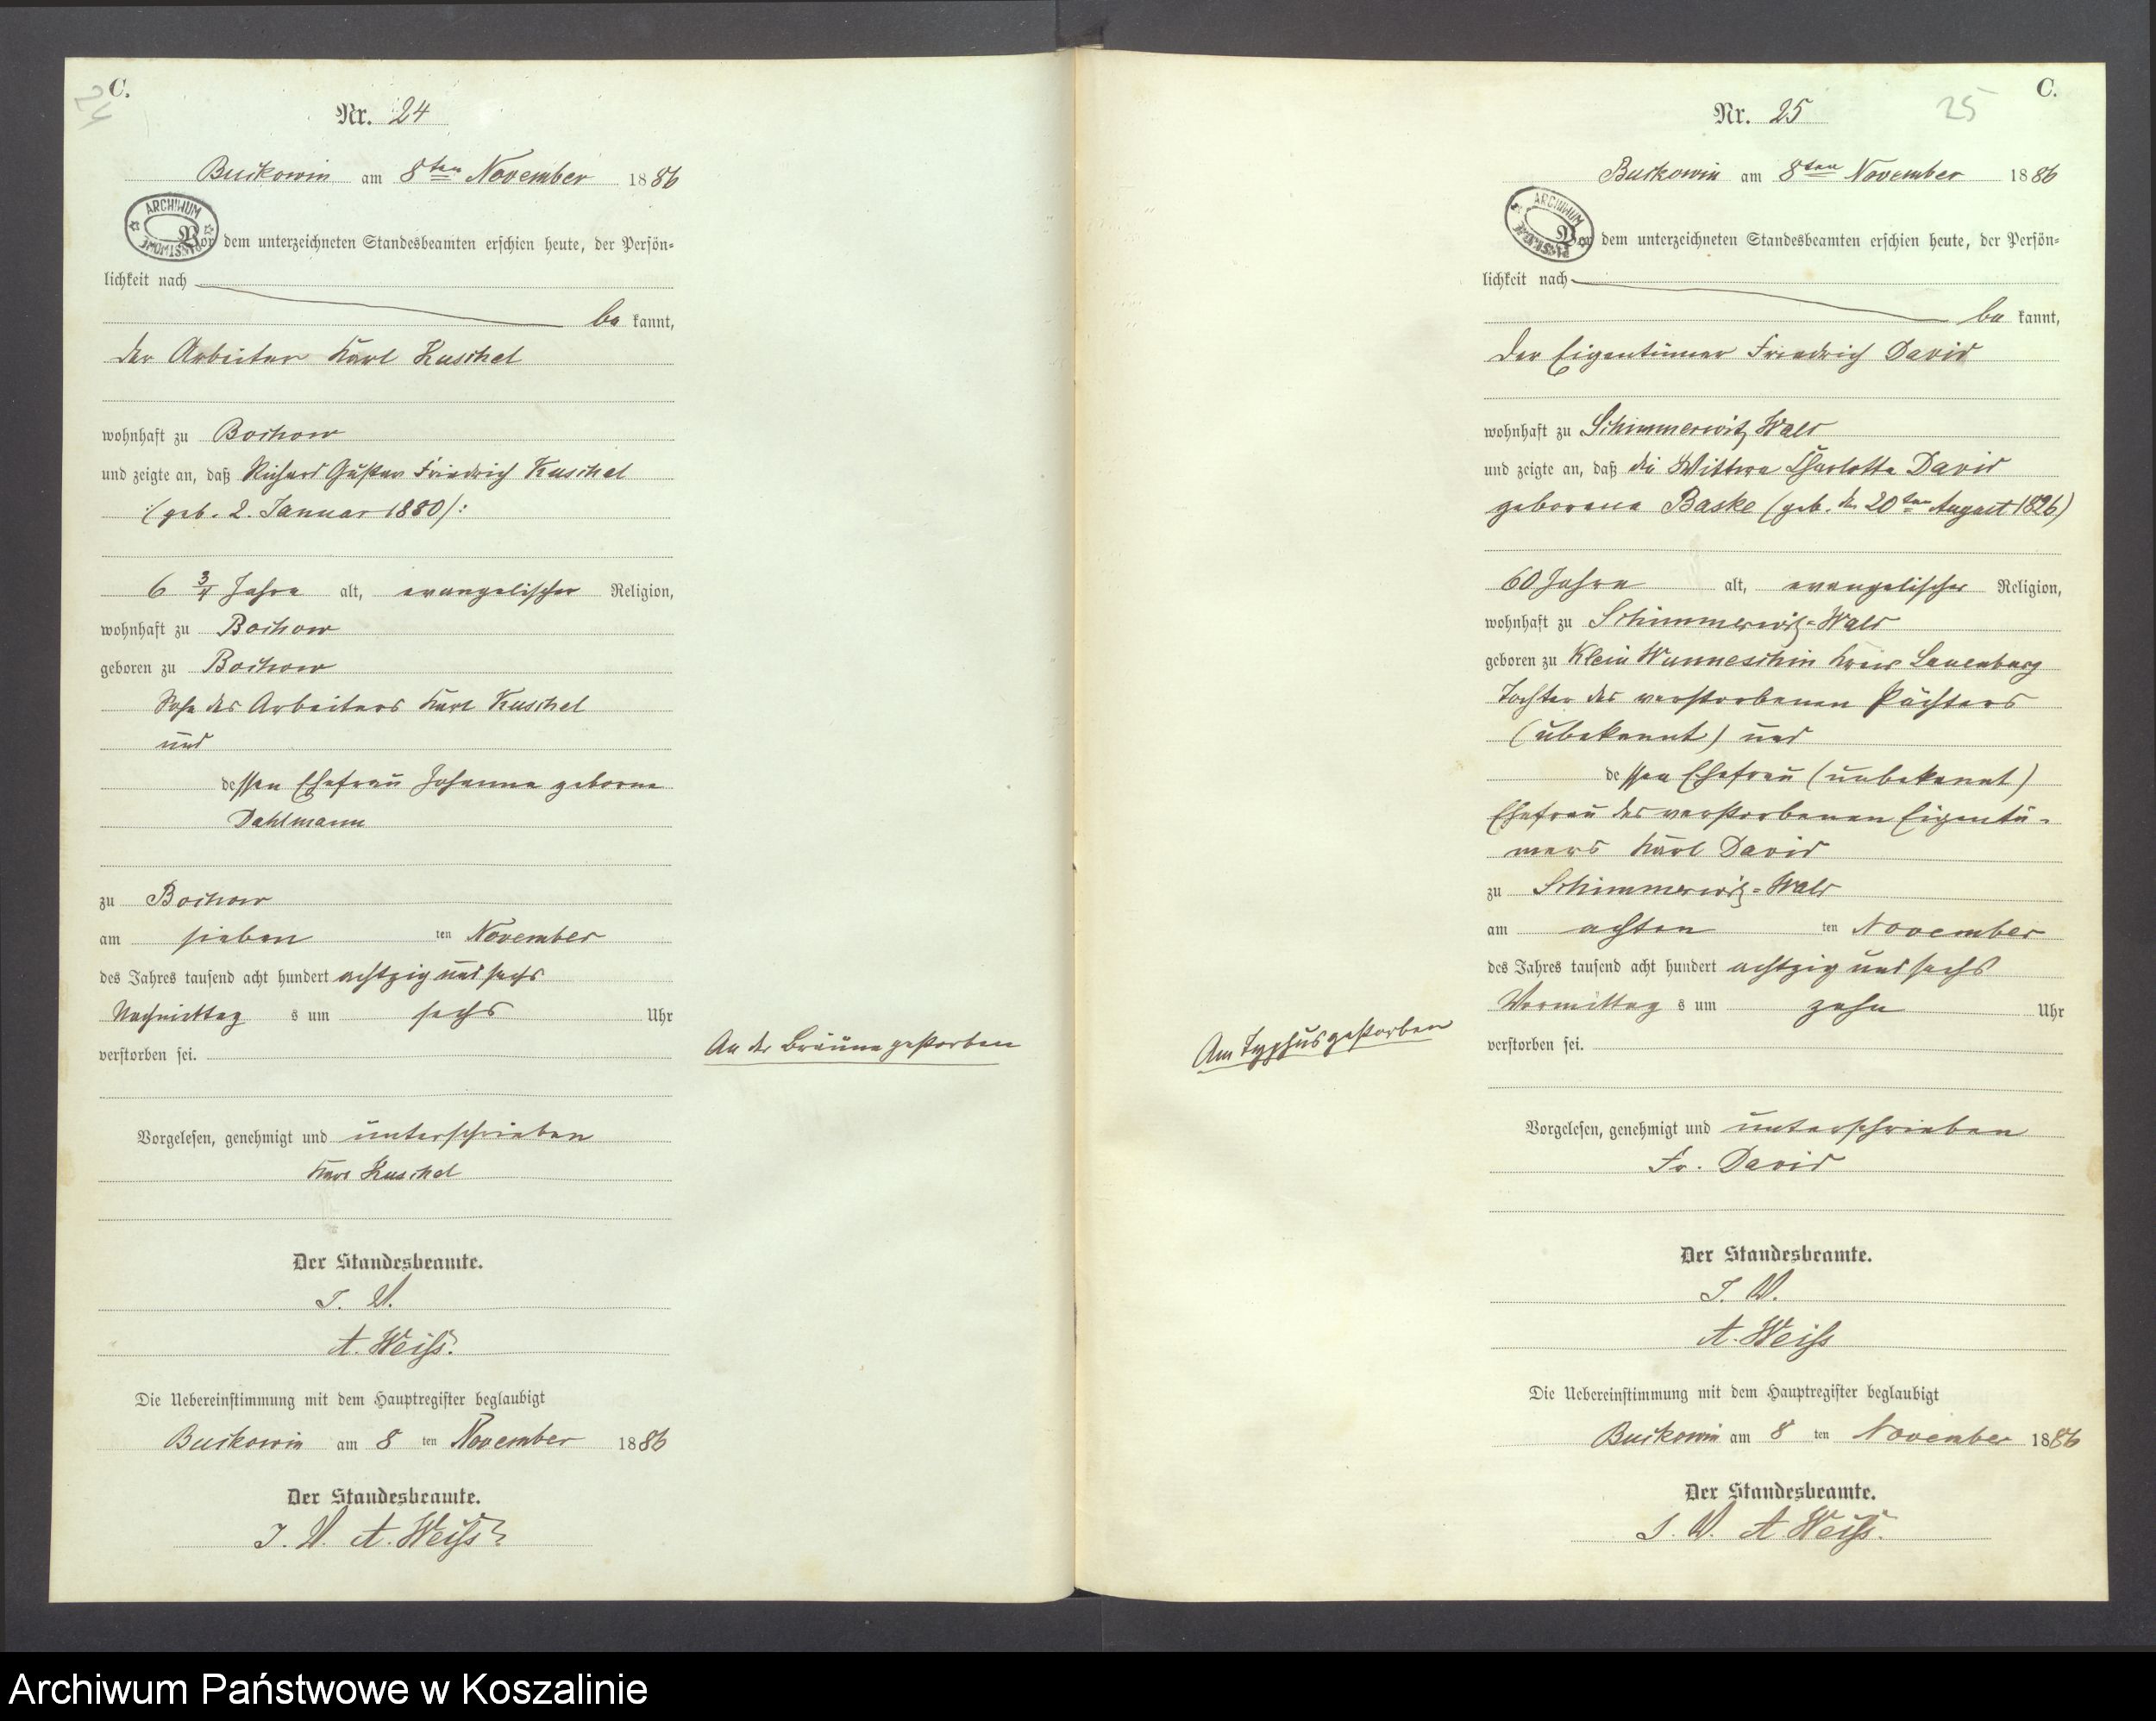 C.
24
Nr. 24
Buckowin am 8ten November 1886
ARCHIWUM
PAŃSTWOWE
Vor dem unterzeichneten Standesbeamten erschien heute, der Persön-
lichkeit nach
be kannt,
der Arbeiter Karl Kuschel
wohnhaft zu Bochow
und zeigte an, daß Richard Gustav Friedrich Kuschel
:/geb. 2. Januar 1880/:
6 3/4 Jahre alt, evangelischer Religion,
wohnhaft zu Bochow
geboren zu Bochow
Sohn des Arbeiters Karl Kuschel
und
dessen Ehefrau Johanna geborne
Dahlmann
zu Bochow
am sieben ten November
des Jahres tausend acht hundert achtzig und sechs
Nachmittag s um sechs Uhr
verstorben sei.
An der Bräune gestorben
Vorgelesen, genehmigt und unterschrieben
Karl Kuschel
Der Standesbeamte.
I. V.
A. Weiß.
Die Uebereinstimmung mit dem Hauptregister beglaubigt
Buckowin am 8 ten November 1886
Der Standesbeamte.
I. V. A. Weiß
C.
25
Nr. 25
Buckowin am 8ten November 1886
ARCHIWUM
PAŃSTWOWE
Vor dem unterzeichneten Standesbeamten erschien heute, der Persön-
lichkeit nach
be kannt,
der Eigentümer Friedrich David
wohnhaft zu Schimmerwitz Wald
und zeigte an, daß die Wittwe Charlotte David
geborene Baske (geb. den 20ten August 1826)
60 Jahre alt, evangelischer Religion,
wohnhaft zu Schimmerwitz-Wald
geboren zu Klein Wunneschin Kreis Lauenburg
Tochter des verstorbenen Pächters
(ubekannt) und
dessen Ehefrau (unbekannt)
Ehefrau des verstorbenen Eigentü-
mers Karl David
zu Schimmerwitz-Wald
am achten ten November
des Jahres tausend acht hundert achtzig und sechs
Vormittag s um zehn Uhr
verstorben sei.
Am Typhus gestorben
Vorgelesen, genehmigt und unterschrieben
Fr. David
Der Standesbeamte.
I. V.
A. Weiß
Die Uebereinstimmung mit dem Hauptregister beglaubigt
Buckowin am 8 ten November 1886
Der Standesbeamte.
I. V. A. Weiß.
Archiwum Państwowe w Koszalinie